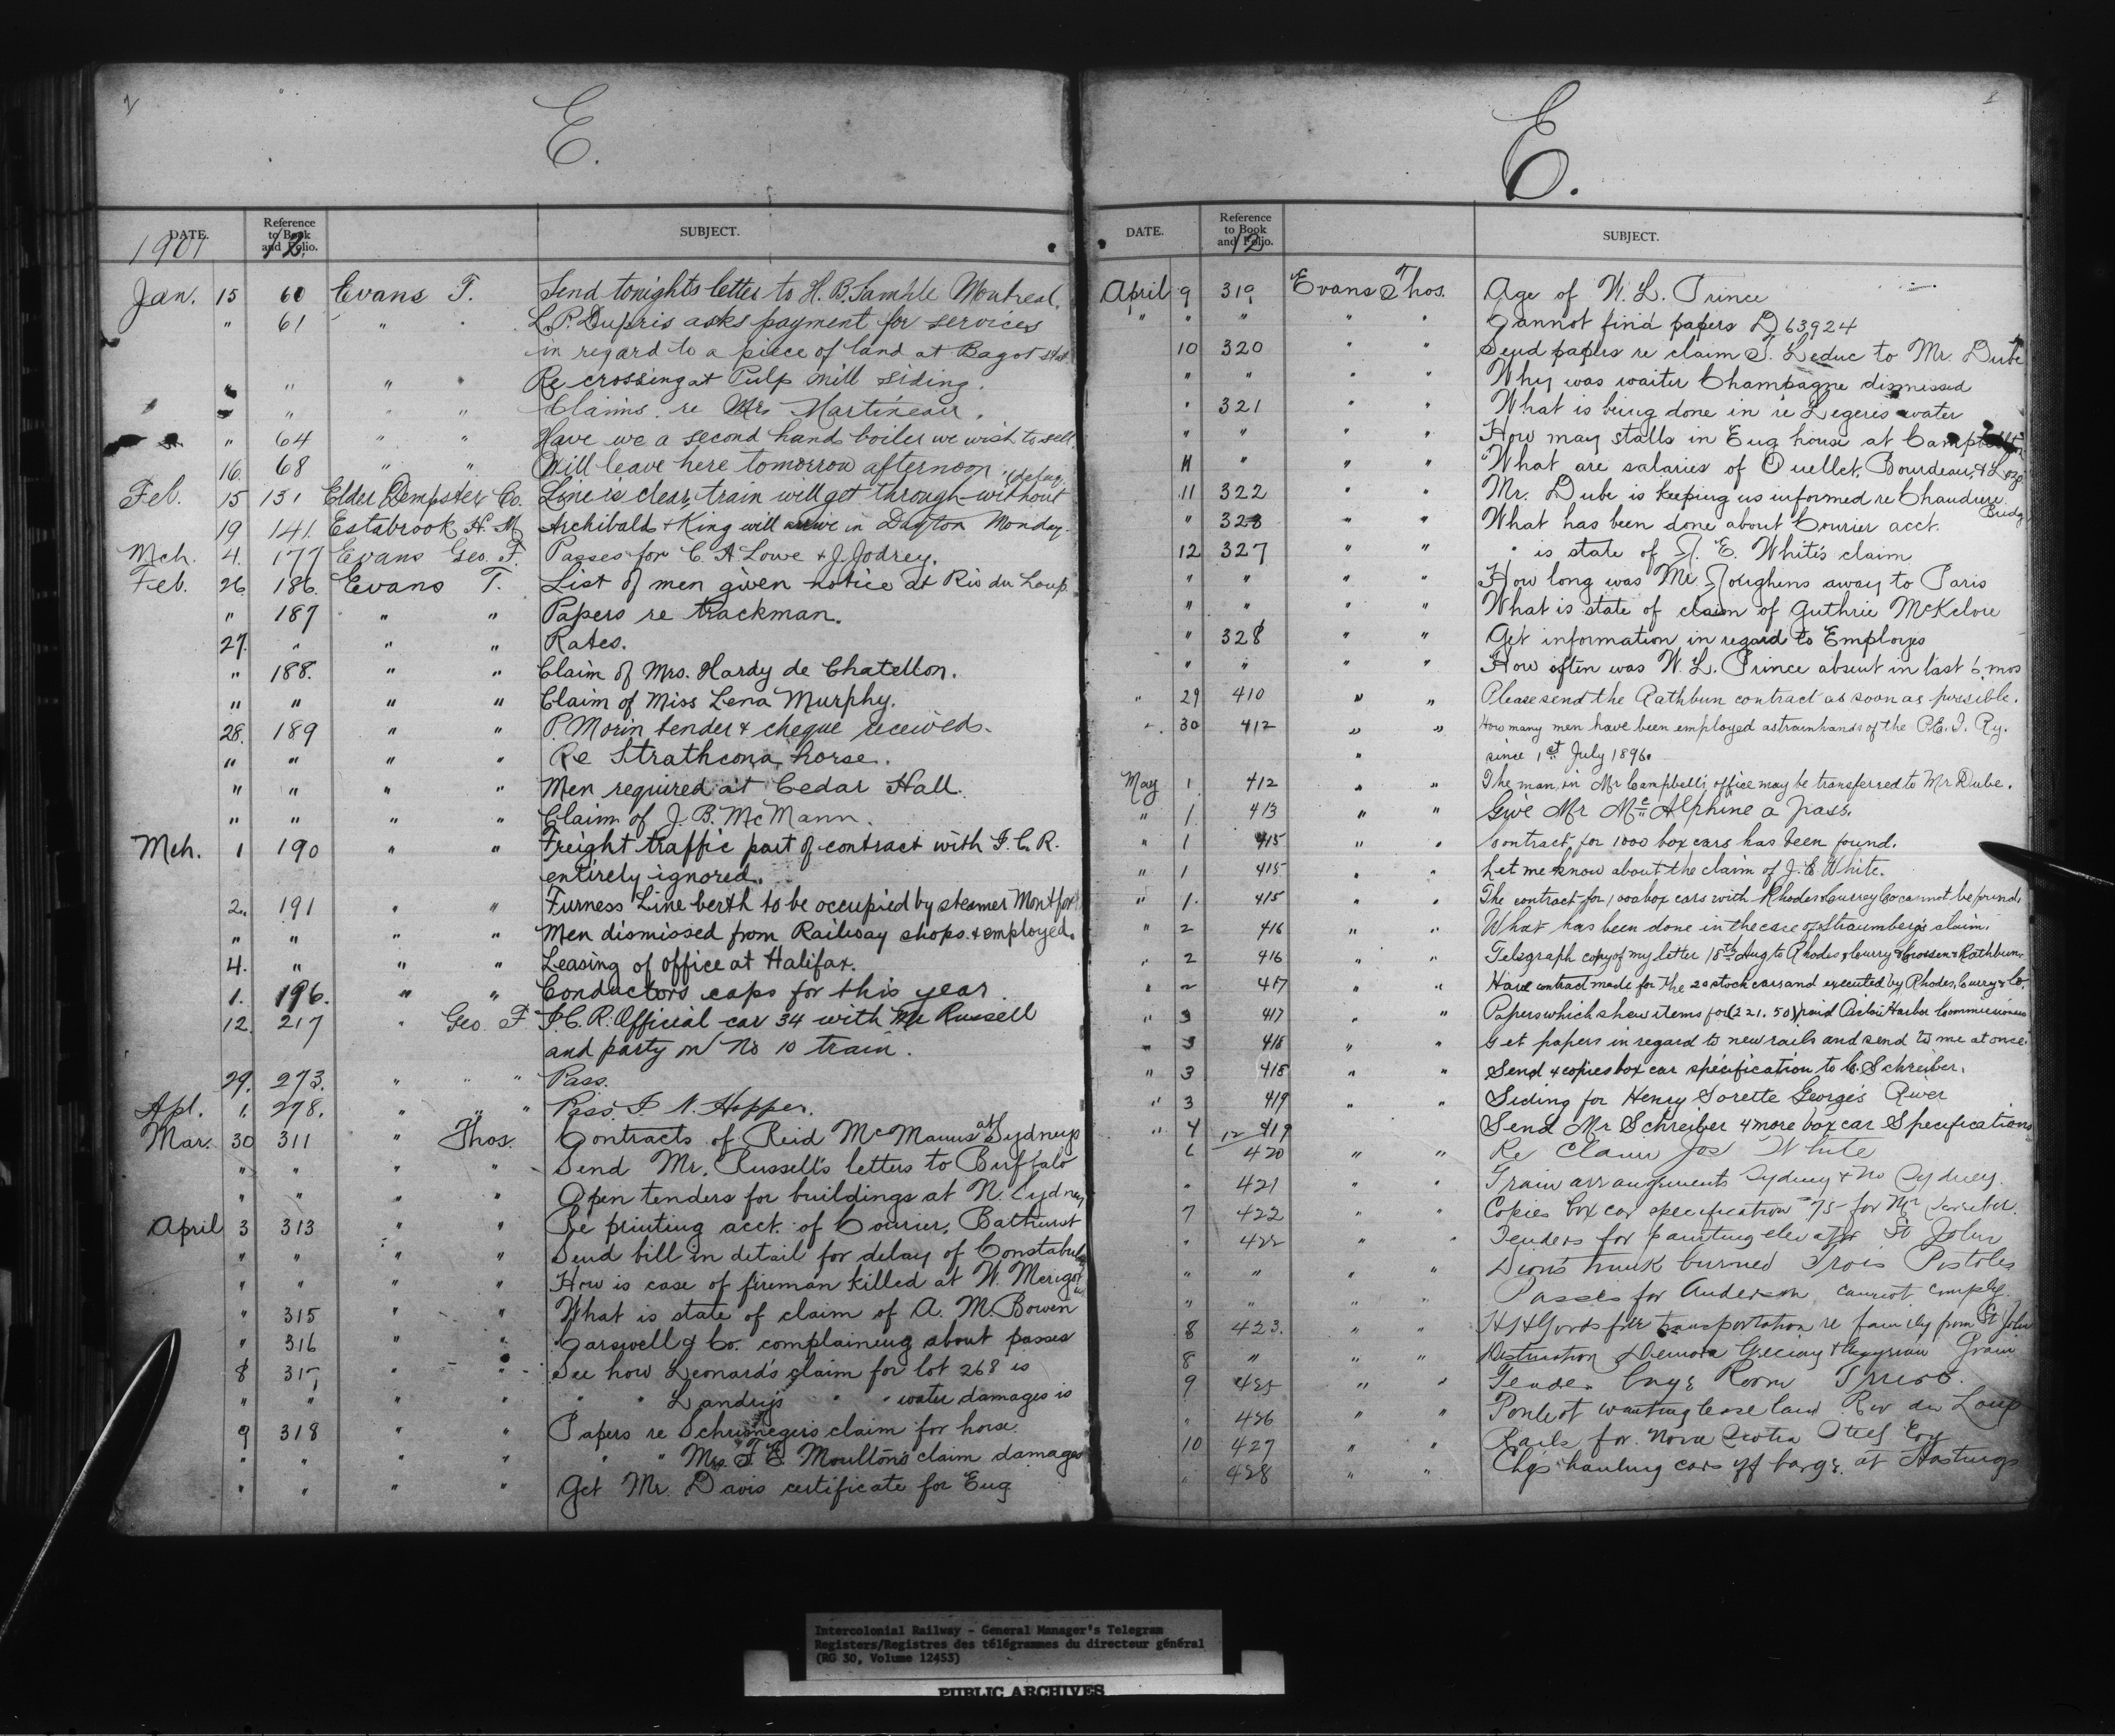 E.
DATE. Reference to Book and Folio. SUBJECT.
1901 12.
Jan. 15 60 Evans T. Send tonights letter to H. B. Sample Montreal.
" 61 " " L. P. Dupris asks payment for services
in regard to a piece of land at Bagot
" " " " Re crossing at Pulp Mill siding.
" " " " Claims re Mrs Martineau.
" 64 " " Have we a second hand boiler we wish to sell
16. 68 " " Will leave here tomorrow afternoon.
Feb. 15 131 Elder Dempster Co. Line is clear, train will get through without (delay.
19 141. Estabrook H. M Archibald & King will arrive in Dayton Monday.
Mch. 4. 177 Evans Geo. F. Passes for C. A Lowe & J. Jodrey.
Feb. 26 186. Evans T. List of men given notice at Riv du Loup
" 187 " " Papers re trackman.
27. " " " Rates.
" 188. " " Claim of Mrs. Hardy de Chatellon.
" " " " Claim of Miss Lena Murphy.
28. 189 " " P. Morin tender & cheque received.
" " " " Re Strathcona horse.
" " " " Men required at Cedar Hall.
" " " " Claim of J. B. McMann.
Mch. 1 190 " " Freight traffic part of contract with I. C. R.
entirely ignored.
2. 191 " " Furness Line berth to be occupied by steamer Montfort
" " " " Men dismissed from Railway shops & employed.
4. " " " Leasing of office at Halifax.
1. 196. " " Conductors caps for this year
12. 217 " Geo F I. C. R. Official car 34 with Mr Russell
and party on No 10 train.
29. 273. " " " Pass.
Apl. 1. 278. " " " Pass. I. N. Hopper.
Mar. 30 311 " Thos. Contracts of Reid McManus at Sydneys
" " " " Send Mr. Russell's letters to Buffalo
" " " " Open tenders for buildings at N. Sydney
April 3 313 " " Re printing acct. of Courier, Bathurst
" " " " Send bill in detail for delay of Constabulary
" " " " How is case of fireman killed at W. Merigo
" 315 " " What is state of claim of A. M. Bowen
" 316 " " Carswell & Co. complaining about passes
8 317 " " See how Leonard's claim for lot 268 is
" " " " " " Landry's " " water damages is
9 318 " " Papers re claim for horse.
" " " " " " Mrs. F. E. Moulton's claim damages
" " " " Get Mr. Davis certificate for Eug
E.
DATE. Reference to Book and Folio. SUBJECT.
12
April 9 319 Evans Thos. Age of W. L. Prince
" " " " " Cannot find papers D 63924
10 320 " " Send papers re claim T. Leduc to Mr. Dube
" " " " Why was waiter Champagne dismissed
" 321 " " What is being done in re Legeres water
" " " " How may stalls in Eug house at Campbellton
11 " " " What are salaries of Ouellet, Bourdeau, &
11 322 " " Mr. Dube is keeping us informed re Chaudiere Bridg
" 323 " " What has been done about Courier acct.
12 327 " " " is state of J. E. White's claim
" " " " How long was Mr. Joughens away to Paris
" " " " What is state of claim of Guthrie McKelvie
" 328 " " Get information in regard to Employes
" " " " How often was W. L. Prince absent in last 6 mos
" 29 410 " " Please send the Rathbun contract as soon as possible.
" 30 412 " " How many men have been employed as trainhands of the P. E. I. Ry.
" since 1st July 1896.
May 1 412 " " The man in Mr Campbells office may be transferred to Mr Dube.
" 1 413 " " Give Mr McAlphine a pass.
" 1 415 " " Contract for 1000 box cars has been found.
" 1 415 " " Let me know about the claim of J. E. White.
" 1. 415 " " The contract for 1000 box cars with Rhodes Currey Co cannot be found.
" 2 416 " " What has been done in the case of Straumberg's claim.
" 2 416 " " Telegraph copy of my letter 18th Aug to Rhodes & Curry & Crossen & Rathbun.
" 2 417 " " Have contract made for the 20 stock cars and executed by Rhodes, Curry & Co.
" 3 417 " " Papers which shew items for (221.50) paid Harbor Commissioners
" 3 418 " " Get papers in regard to new rails and send to me at once.
" 3 418 " " Send 4 copies box car specification to C. Schreiber.
" 3 419 " " Siding for Henry Sorette Georges River
" 4 12 419 Send Mr Schreiber 4 more box car Specifications
6 420 " " Re Claim Jos White
" 421 " " Train arrangements Sydney & No Sydney.
7 422 " " Copies box car specification 75 for Mr Schreiber.
" 422 " " Tenders for painting elevator St John
" " " " Dion's trunk burned Trois Pistoles
" " " " Passes for Anderson cannot comply.
8 423. " " free transportation re family from St John
8 " " " Grain
9 425 " " Tender Engs Room Truro.
" 426 " " Pouliot wanting lease land Riv du Loup
10 427 " " Rails for Nova Scotia Steel Coy
" 428 " " Chgs hauling cars off barge at Hastings
Intercolonial Railway - General Manager's Telegram
Registers/Registres des télégrammes du directeur général
(RG 30, Volume 12453)
PUBLIC ARCHIVES